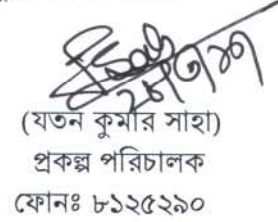 (যতন কুমার সাহা)
প্রকল্প পরিচালক
ফোনঃ ৮১২৫২৯০